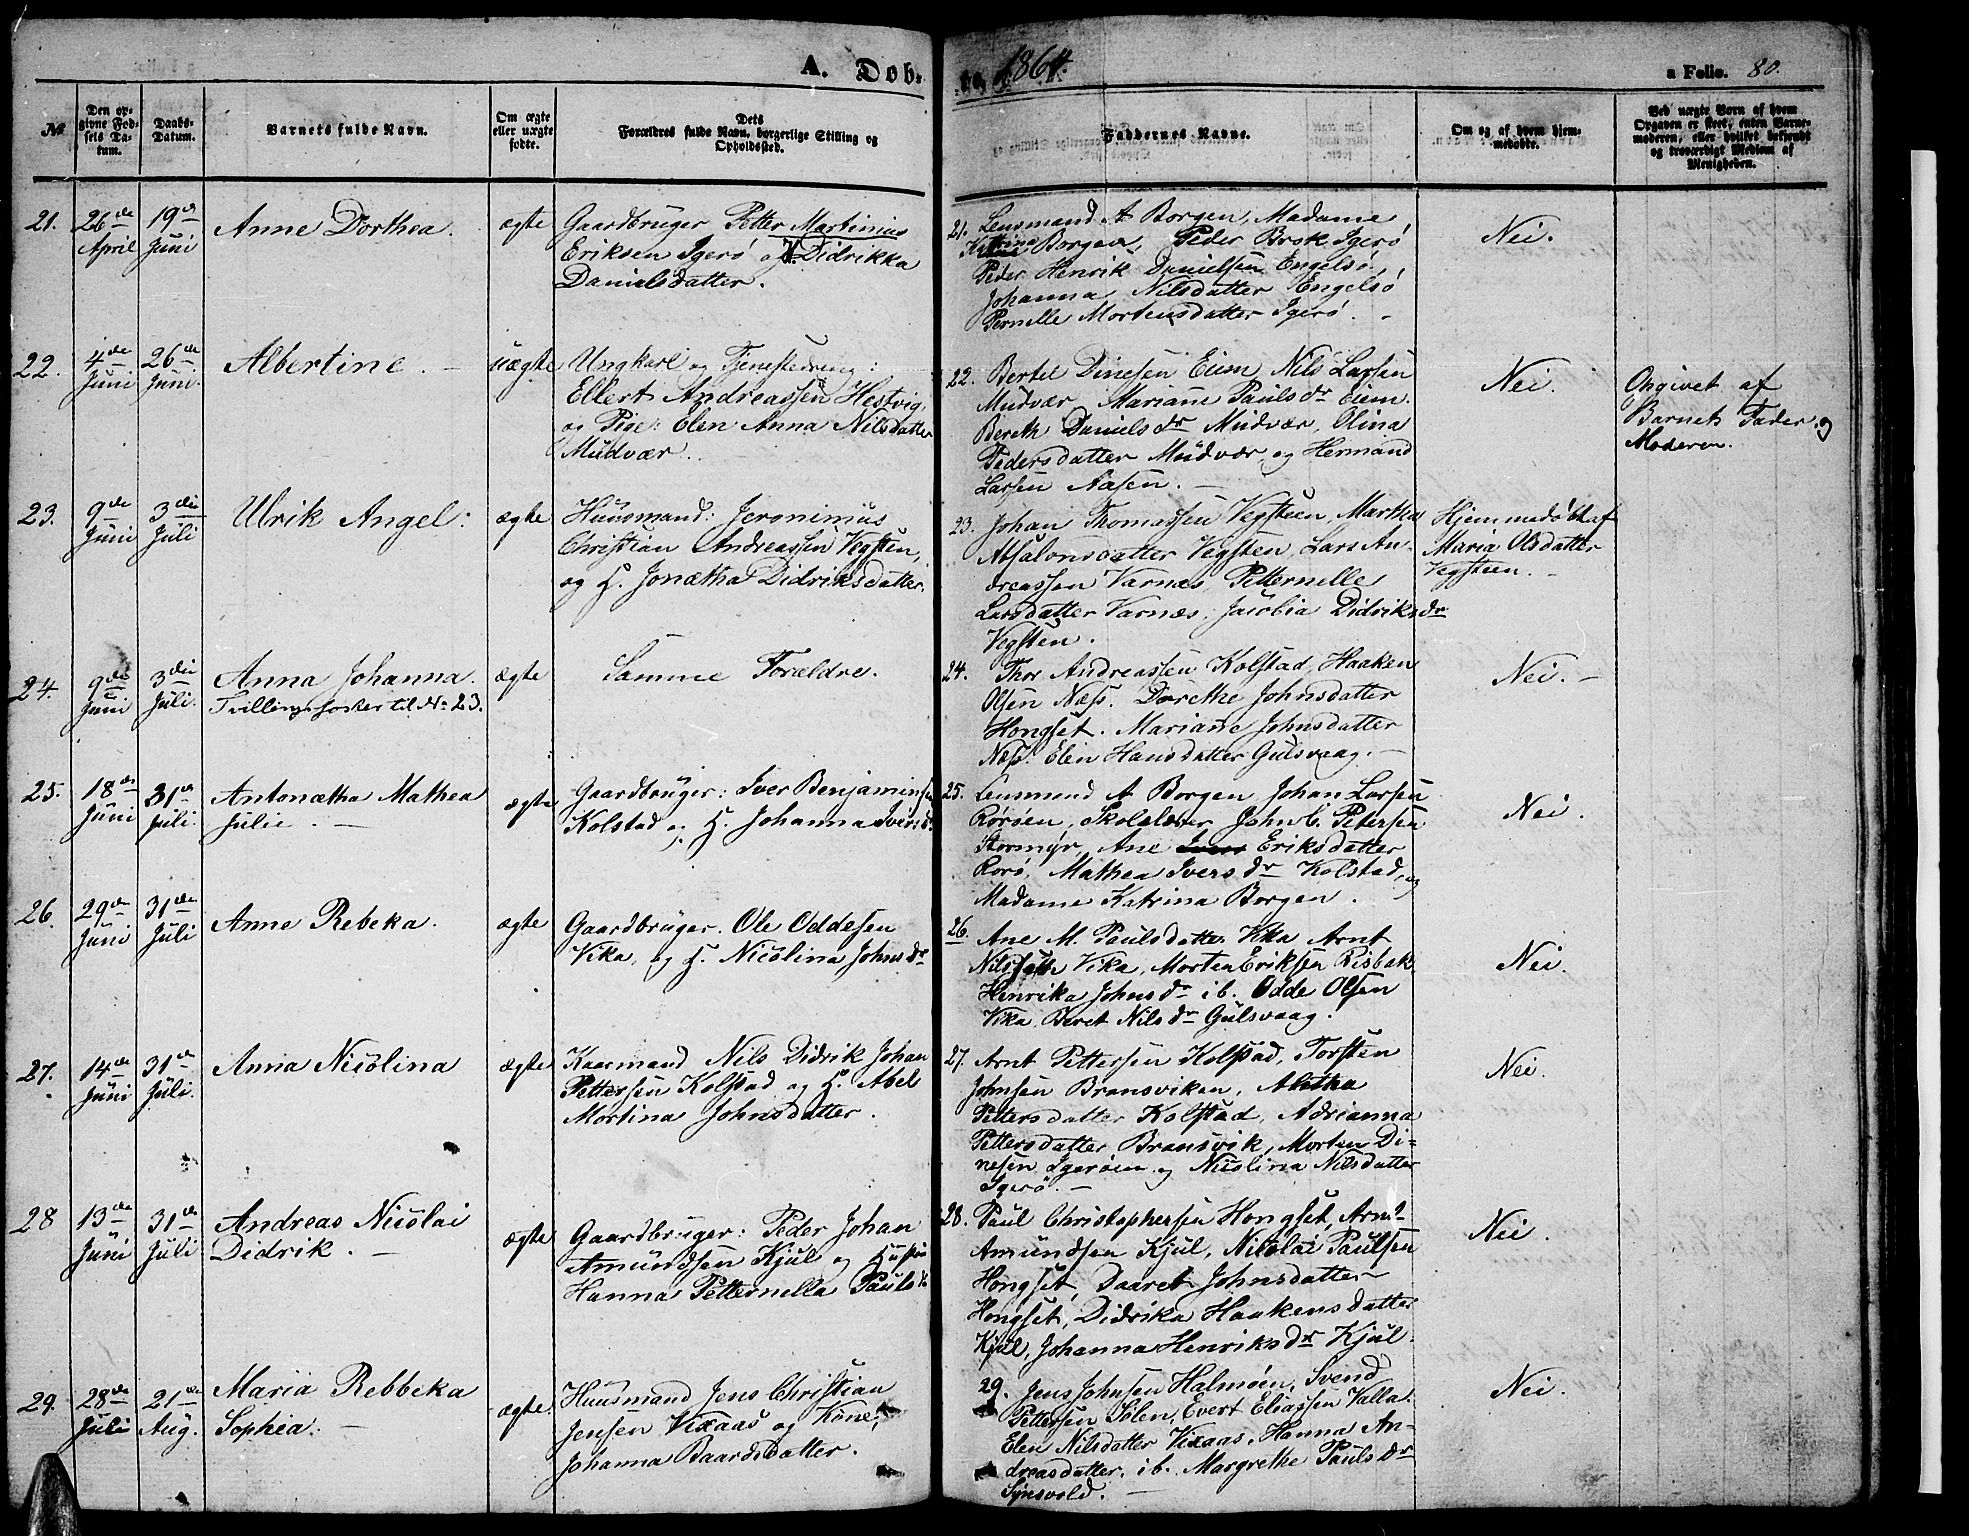 A. Døb- te, 1864. a Folio. 80.
No
Den opgivne Fødsels Datum.
Daabs-Datum.
Barnets fulde Navn.
Om ægte eller uægte fødte.
Dets Forældres fulde Navn, borgerlige Stilling og Opholdssted.
Faddernes Navne.
Om og af hvem hjemmedøbte.
Ved uægte Børn af hvem Opgaven er skeet, enten Barnemoderen, eller hvilket bekjendt og troværdigt Medlem af Menigheden.
21. 26de April 19de Juni Anne Dorthea. ægte
Gaardbruger Petter Martinius
Eriksen Igerö og H. Didrikka
Danielsdatter.
21. Lensmand A Borgen, Madame
Katrina Borgen, Peder Brok Igerö
Peder Henrik Danielsen Engelsö,
Johanna Nilsdatter Engelsö
Pernille Mortensdatter Igerö.
Nei.
22. 4de Juni 26de Juni. Albertine. uægte
Ungkarl og Tjenestedreng:
Ellert Andreassen Hestvig,
og Pige: Elen Anna Nilsdatter
Mudvær.
22. Bertel Dinesen Eiem, Nils Larsen
Mudvær, Mariane Paulsdr Eiem.
Bereth Danielsdr Mudvær, Olina
Pedersdatter Mudvær, og Hermand
Larsen Aasen.
Nei.
Ongivet af
Barnets Fader og
Moderen.
23. 9de Juni 3die Juli Ulrik Angel: ægte
Huusmand: Jeronimus
Christian Andreassen Vegsten,
og H. Jonætha Didriksdatter.
23. Johan Thomassen Vegsteen, Martha
Absalonsdatter Vegsten, Lars An-
dreassen Varnæs, Petternelle
Larsdatter Varnæs, Jacobia Didriksdr
Vegsten.
Hjemmedøbt af
Maria Olsdatter
Vegsteen.
24. 9de Juni 3die Juli. Anna Johanna.
Tvillingsøster til No 23.
ægte
Samme Forældre.
24. Thor Andreassen Kolstad, Haaken
Olsen Næss. Dorethe Johnsdatter
Hongset. Mariane Johnsdatter
Næss. Elen Hansdatter Gulsvaag.
Nei.
25. 18de Juni 31te Juli. Antonætha Mathea
Julie.
ægte
Gaardbruger: Iver Benjaminsen
Kolstad og H. Johanna Iversd.
25. Lensmand A Borgen, Johan Larsen
Röröen, Skolelærer John C. Petersen
Stormyr, Ane Eriksdatter
Rorö, Mathea Iversdr Kolstad, og
Madame Katrina Borgen.
Nei.
26. 29de Juni 31te Juli Anne Rebeka. ægte
Gaardbruger. Ole Oddesen
Vika, og H. Nicolina Johnsdr
26. Ane M. Paulsdatter Vika Arnt
Vika, Morten Eriksen Risbak
Henrika Johnsdr ib. Odde Olsen
Vika, Beret Nilsdr Gulsvaag.
Nei.
27. 14de Juni 31te Juli. Anna Nicolina ægte
Kaarmand Nils Didrik Johan
Pettersen Kolstad og H. Abel
Mortina Johnsdatter.
27. Arnt Pettersen Kolstad, Torsten
Johnsen Bransviken, Alitha
Pettersdatter Kolstad, Adrianna
Pettersdatter Bransvik, Morten Di-
nesen Igeröen og Nicolina Nilsdatter
Igerö.
Nei.
28 13de Juni 31te Juli Andreas Nicolai
Didrik.
ægte
Gaardbruger: Peder Johan
Amundsen Kjul og Hustru
Hanna Petternella Paulsdr
28. Paul Christophersen Hongset, Arnt
Amundsen Kjul, Nikolai Paulsen
Hongset, Daaret Johnsdatter
Hongset, Didrika Haakensdatter
Kjul, Johanna Henriksdr Kjul.
Nei.
29. 28de Juli 21de Aug. Maria Rebbeka
Sophia.
ægte.
Huusmand Jens Christian
Jensen Vixaas og Kone:
Johanna Baardsdatter.
29. Jens Johnsen Halmöen, Svend
Pettersen Solen, Evert Eliassen Valla.
Elen Nilsdatter Vixaas, Hanna An-
dreasdatter ib. Margrethe Paulsdr
Synsvold.
Nei.